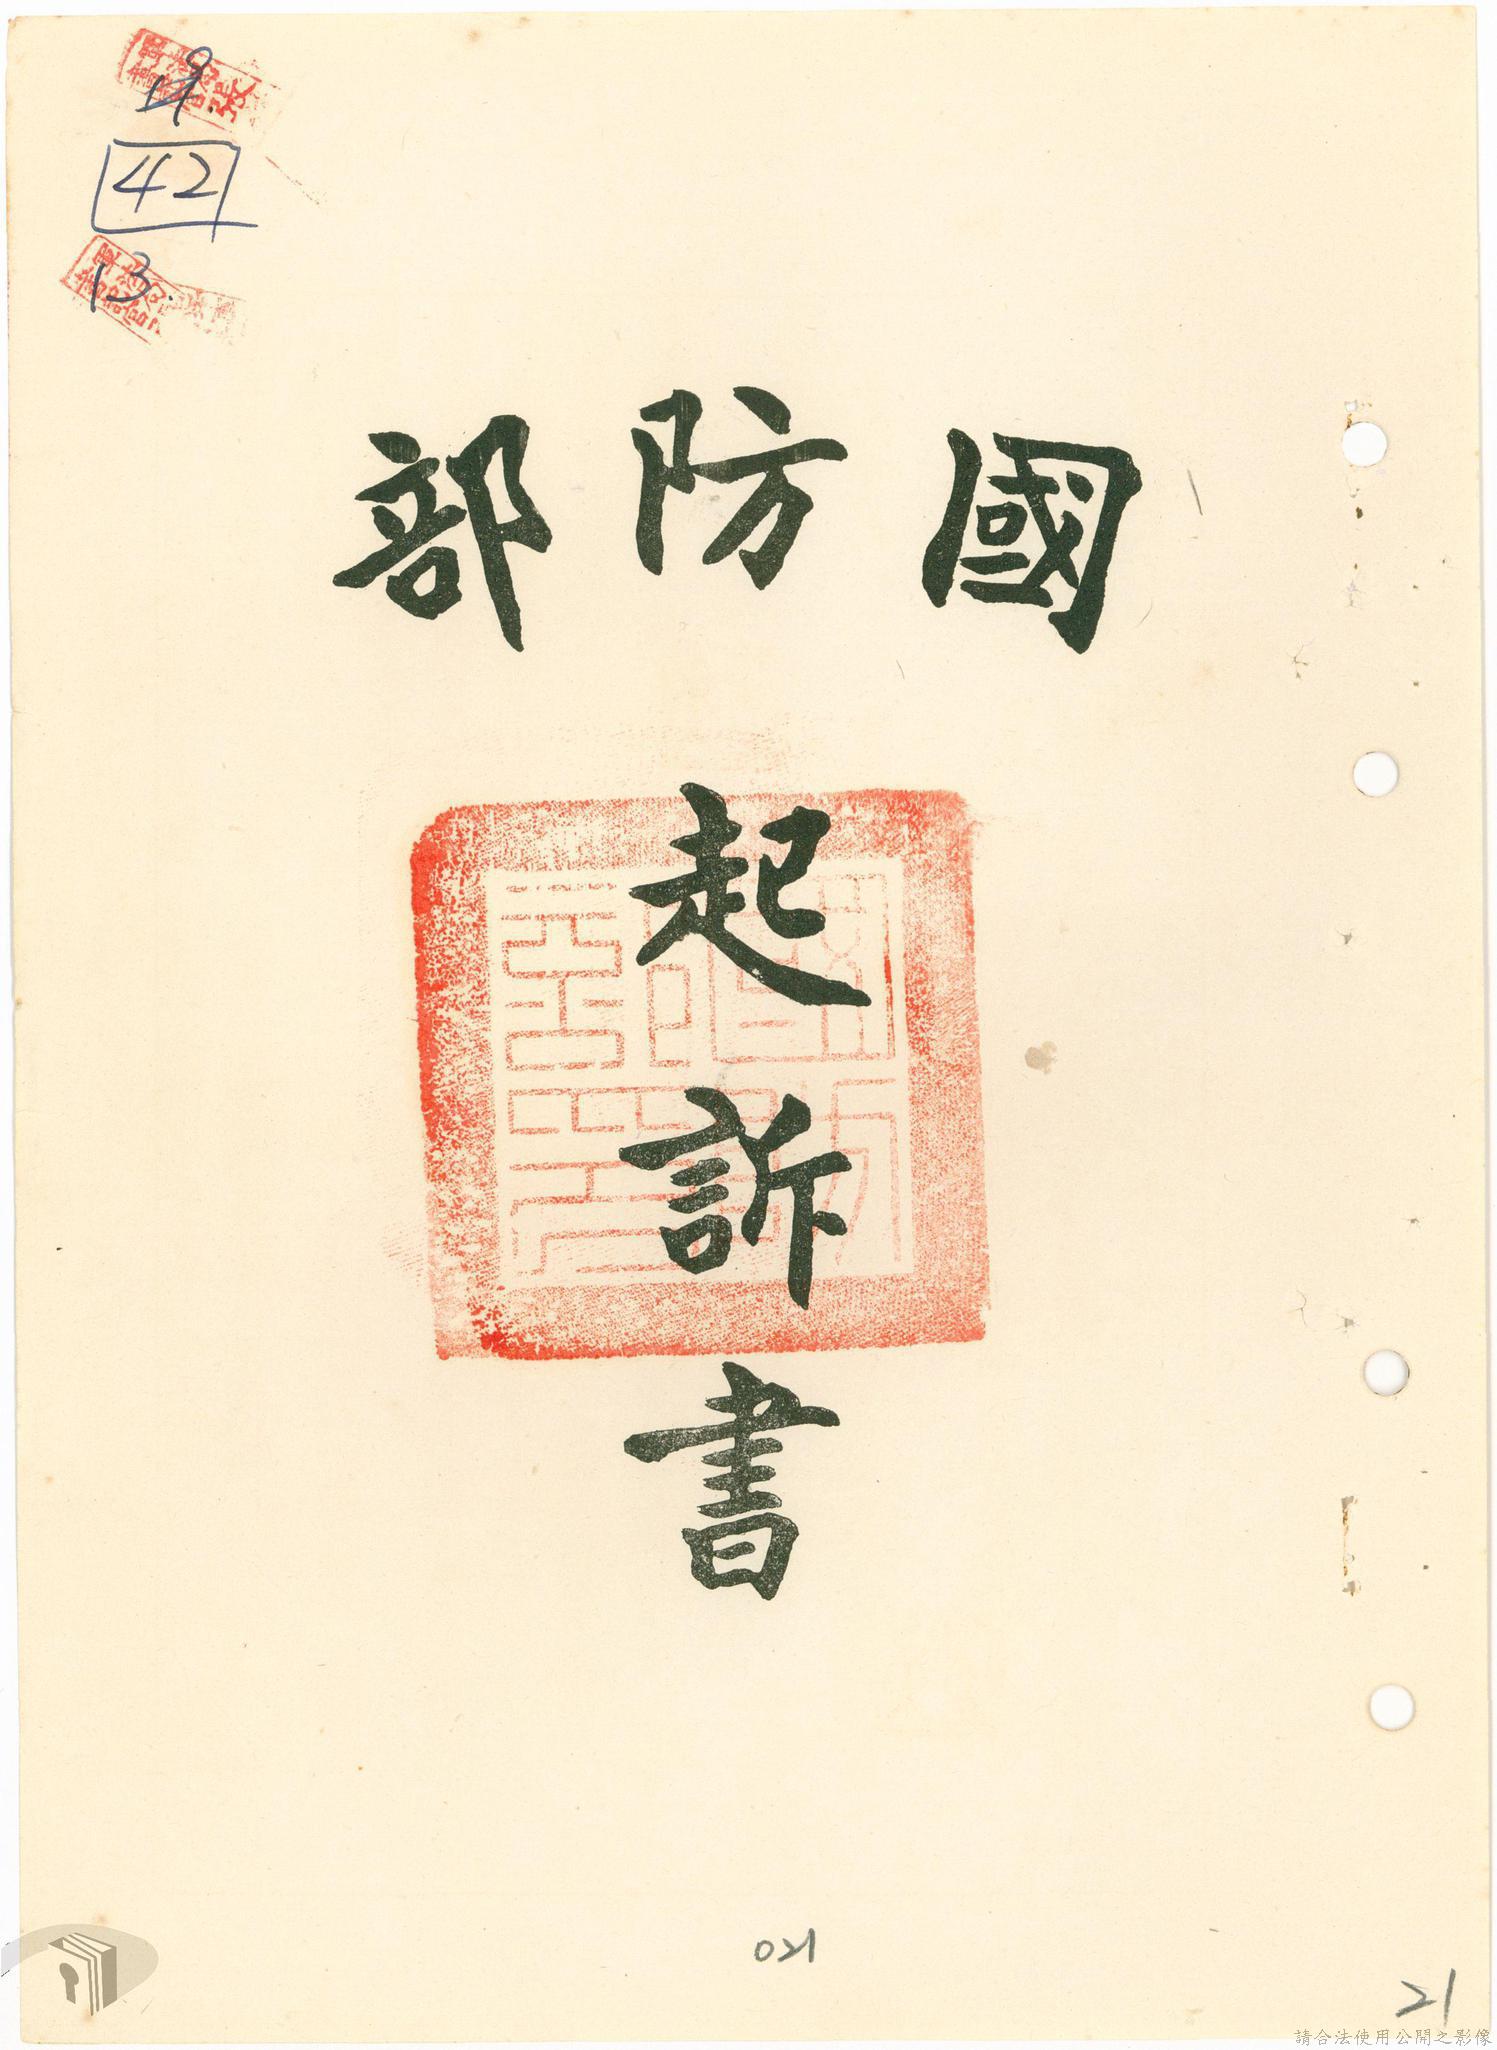 42
13.
國防部
起訴書
021
21
請合法使用公開之影像